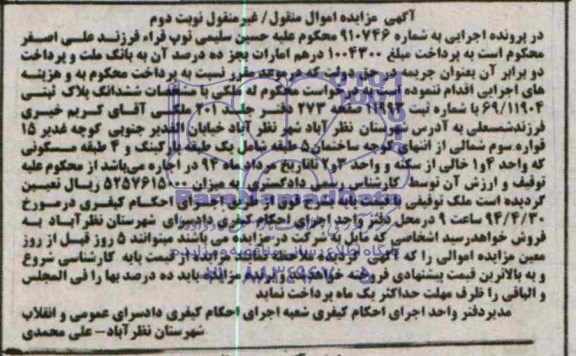 آگهی مزایده اموال منقول/ غیرمنقول نوبت دوم
در پرونده اجرایی به شماره ۹۱۰۷۴۶ محکوم علیه حسین سلیمی توپ قراء فرزند علی اصغر
محکوم است به پرداخت مبلغ ۱۰۰۴۳۰۰ درهم امارات بجز ده درصد آن به بانک ملت و پرداخت
دو برابر آن بعنوان جریمه در حق دولت که در موعد مقرر نسبت به پرداخت محکوم به و هزینه
های اجرایی اقدام ننموده است به درخواست محکوم له ملکی با مشخصات ششدانگ پلاک ثبتی
۶۹/۱۱۹۰۴ با شماره ثبت ۱۱۹۹۳ صفحه ۲۷۳ دفتر جلد ۲۰۱ ملکی آقای کریم خیری
فرزند شمسعلی به آدرس شهرستان نظر آباد شهر نظر آباد خیابان الغدیر جنوبی کوچه غدیر ۱۵
قواره سوم شمالی از انتهای کوچه ساختمان ۵ طبقه شامل یک طبقه پارکینگ و ۴ طبقه مسکونی
که واحد ۴و۱ خالی از سکنه و واحد ۳و۲ تا تاریخ مرداد ماه ۹۴ در اجاره می‌باشد از محکوم علیه
توقیف و ارزش آن توسط کارشناس رسمی دادگستری به میزان ریال تعیین
گردیده است ملک توقیفی با قیمت پایه شرح فوق از طریق اجرای احکام کیفری در مورخ
۹۴/۴/۳۰ ساعت ۹ در محل دفتر واحد اجرای احکام کیفری دادسرای شهرستان نظرآباد به
فروش خواهد رسید اشخاصی که مایل به شرکت در مزایده می باشند میتوانند ۵ روز قبل از روز
معین مزایده اموالی را که آگهی گردیده ملاحظه نمایند مزایده از قیمت پایه کارشناسی شروع
و به بالاترین قیمت پیشنهادی فروخته خواهد شد برنده مزایده باید ده درصد بها را فی المجلس
و الباقی را ظرف مهلت حداکثر یک ماه پرداخت نماید
مدیر دفتر واحد اجرای احکام کیفری شعبه اجرای احکام کیفری دادسرای عمومی و انقلاب
شهرستان نظر آباد - علی محمدی